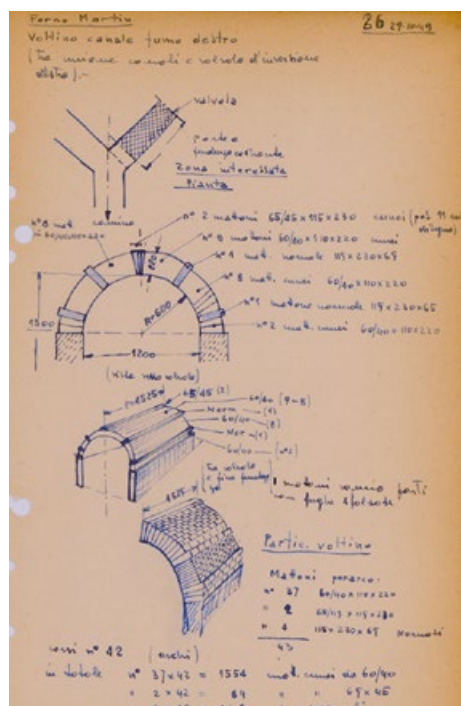 Forno Martin
26 29.10.49
Voltino canale fumo destro
(Tra unione camoli e valvola d'inversione
destra).-
valvola
Zona interessata
Pianta
camino
n° 2 mattoni 65/45 x 115 x 230 cunei
n° 9 mattoni 60/40 x 110 x 220 cunei
n° 1 mat. normale 115 x 230 x 65
n° 8 mat. cunei 60/40 x 110 x 220
n° 1 mattone normale 115 x 230 x 65
n° 2 mat. cunei 60/40 x 110 x 220
R=600
1300
1200
65/45 (2)
60/40 (9-8)
Norm - (1)
60/40 - (8)
Nor - (1)
60/40 - (n°2)
mattoni
con fughe sfalsate
Partic. voltino
Mattoni per arco:
n° 37 60/40 x 110 x 220
" 2 65/45 x 115 x 230
" 4 115 x 230 x 65 Normali
43
corsi n° 42 (archi)
in totale n° 37x42 = 1554 mat. cunei da 60/40
" 2x42 = 84 " " 65x45